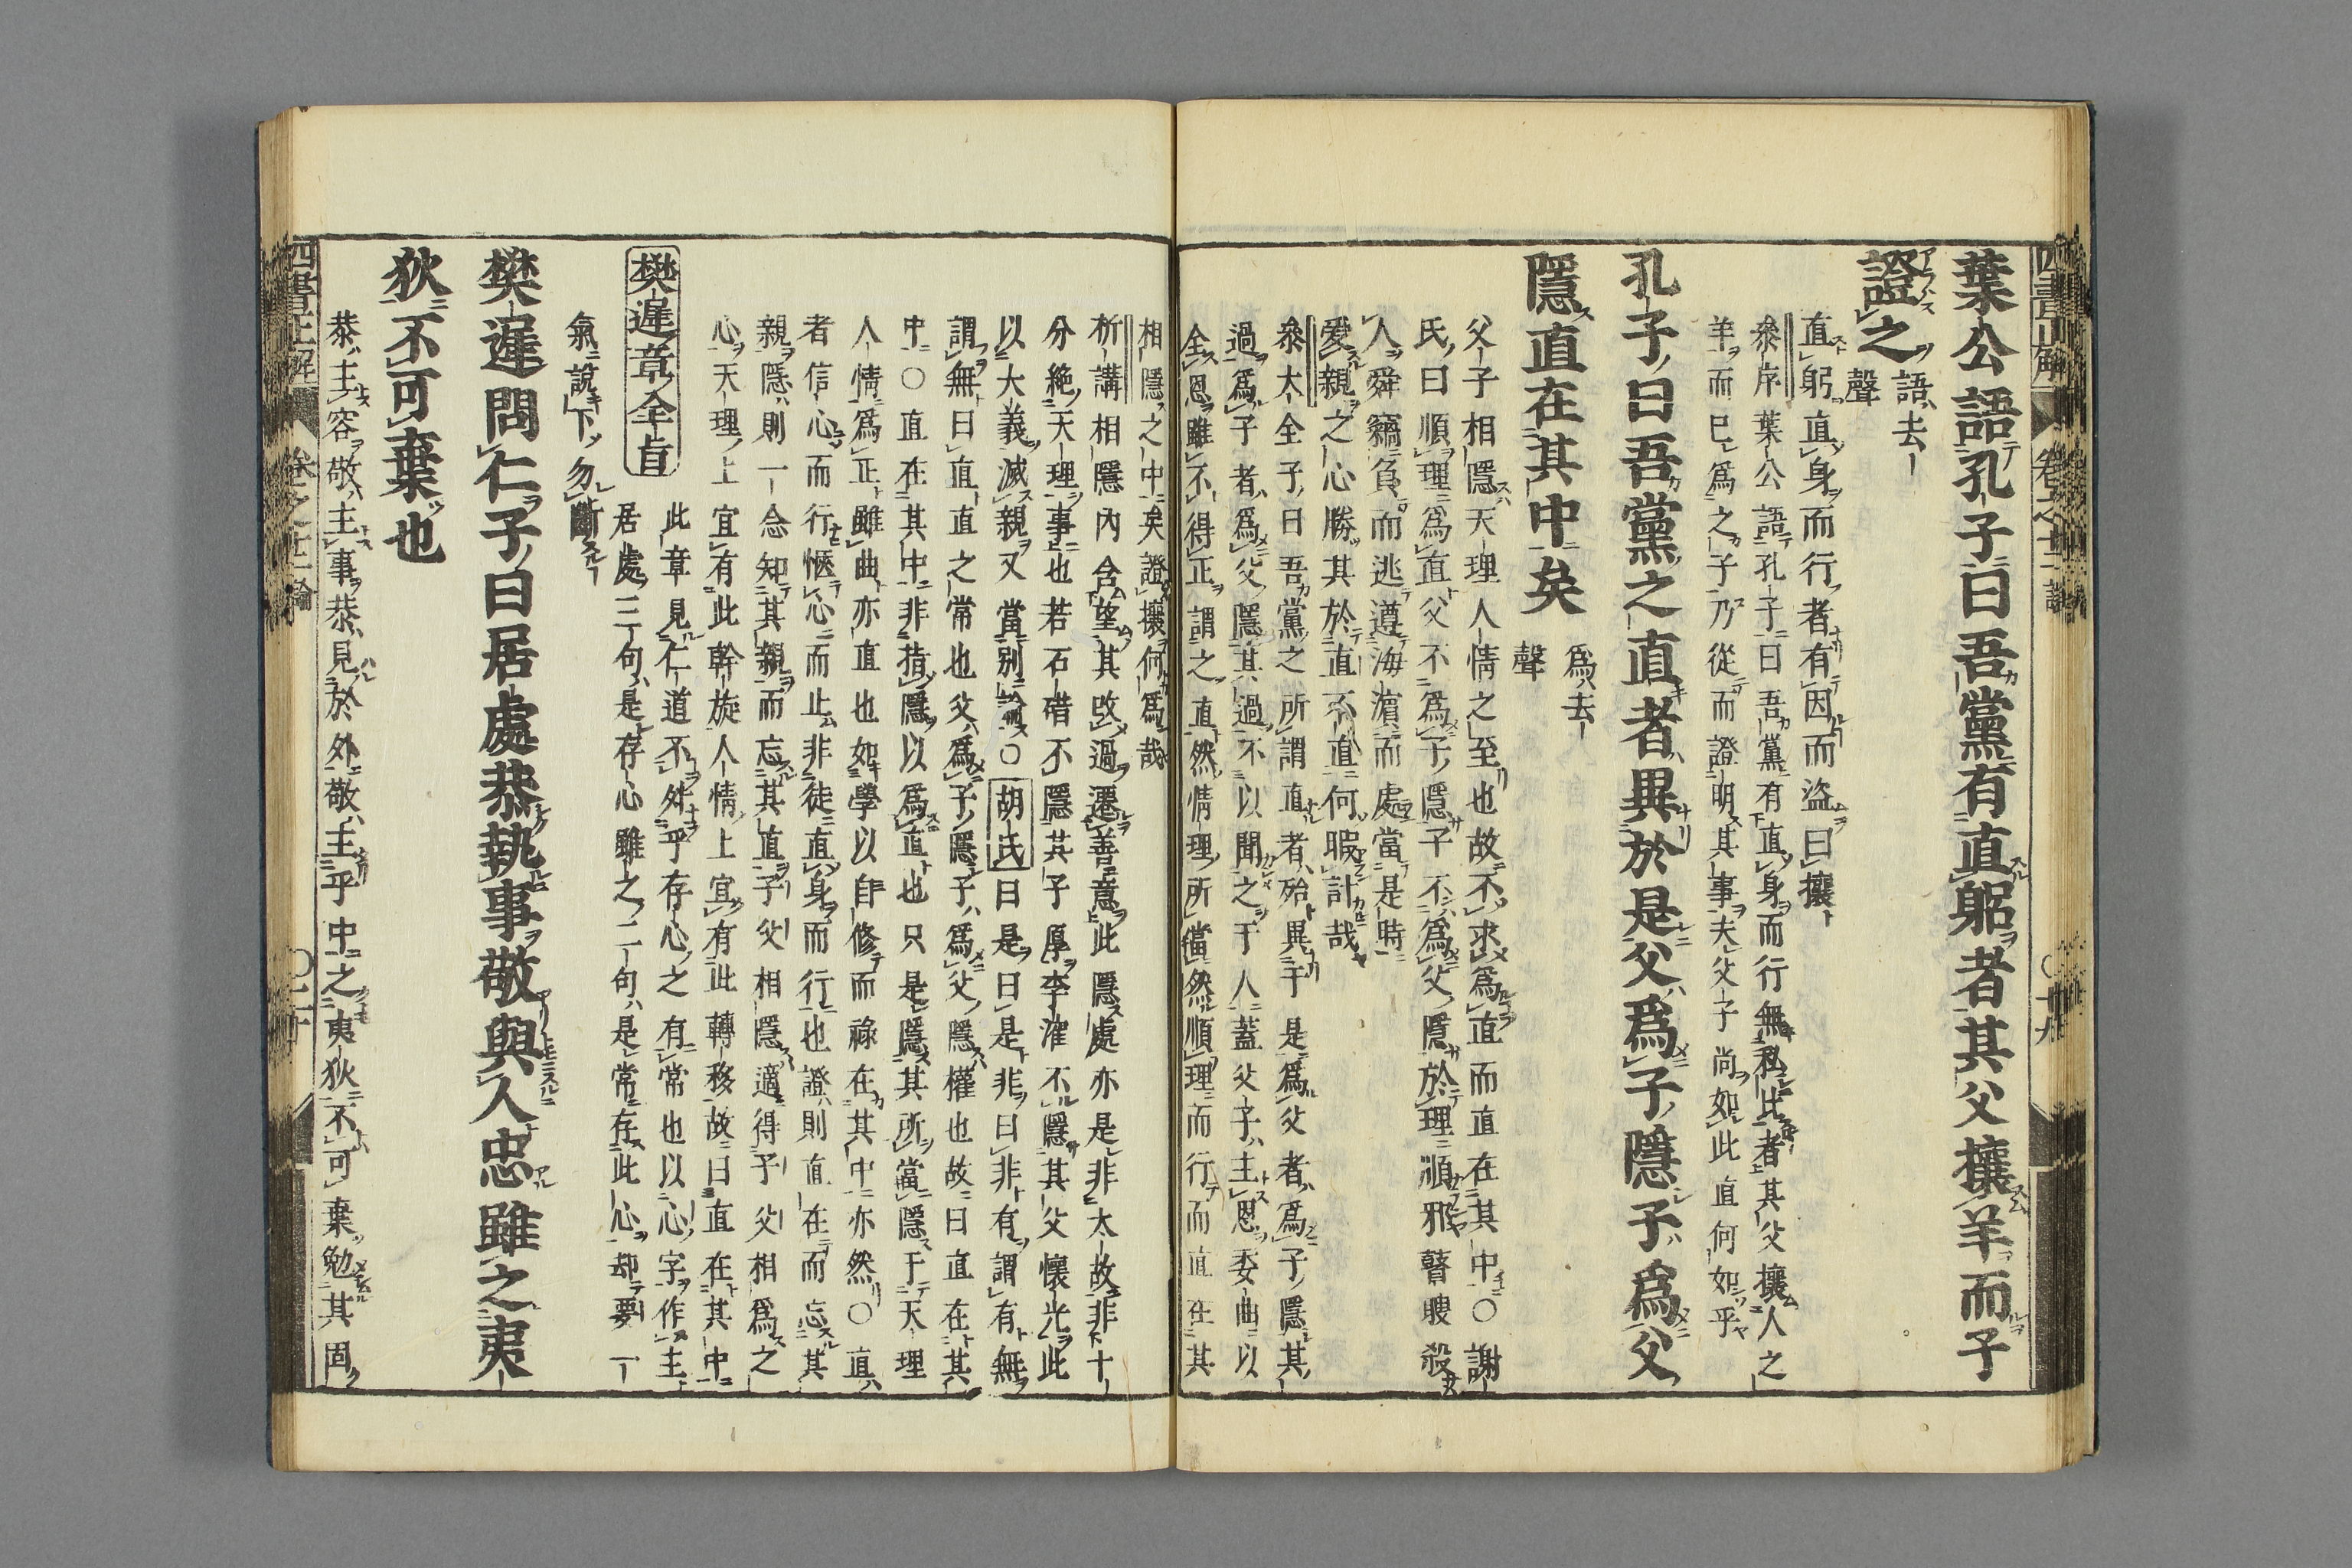 葉公語孔子曰吾黨有直躬者其父攘羊而子
證之
語去
聲
直躬直身而行者有因而盜曰攘
參序葉公語孔子曰吾黨有直身而行無私比者其父攘人之
羊而已爲之子乃從而證明其事夫父子尚如此直何如乎
孔子曰吾黨之直者異於是父爲子隱子爲父
隱直在其中矣
爲去
聲
父子相隱天理人情之至也故不求爲直而直在其中〇謝
氏曰順理爲直父不爲子隱子不爲父隱於理順邪瞽瞍殺
人舜竊負而逃遵海濱而處當是時
愛親之心勝其於直不直何暇計哉
參太全子曰吾黨之所謂直者殆異于是爲父者爲子隱其
過爲子者爲父隱其過不以聞之于人蓋父子主恩委曲以
全恩雖不得正謂之直然情理所當然順理而行而直在其
相隱之中矣證攘何爲哉
析講相隱內含望其改過遷善意此隱處亦是非太故非十
分絶天理事也若石碏不隱其子厚李漼不隱其父懷光此
以大義滅親又當別論〇胡氏曰是曰是非曰非有謂有無
謂無曰直直之常也父爲子隱子爲父隱權也故曰直在其
中〇直在其中非指隱以爲直也只是隱其所當隱于天理
人情爲正雖曲亦直也如學以自修而祿在其中亦然〇直
者信心而行愜心而止非徒直身而行也證則直在而忘其
親隱則一念知其親而忘其直子父相隱適得子父相爲之
心天理上宜有此幹旋人情上宜有此轉移故曰直在其中
樊遲章全旨
此章見仁道不外乎存心之有常也以心字作主
居處三句是存心雖之二句是常存此心却要一
氣說下勿斷
樊遲問仁子曰居處恭執事敬與人忠雖之夷
狄不可棄也
恭主容敬主事恭見於外敬主乎中之夷狄不可棄勉其固